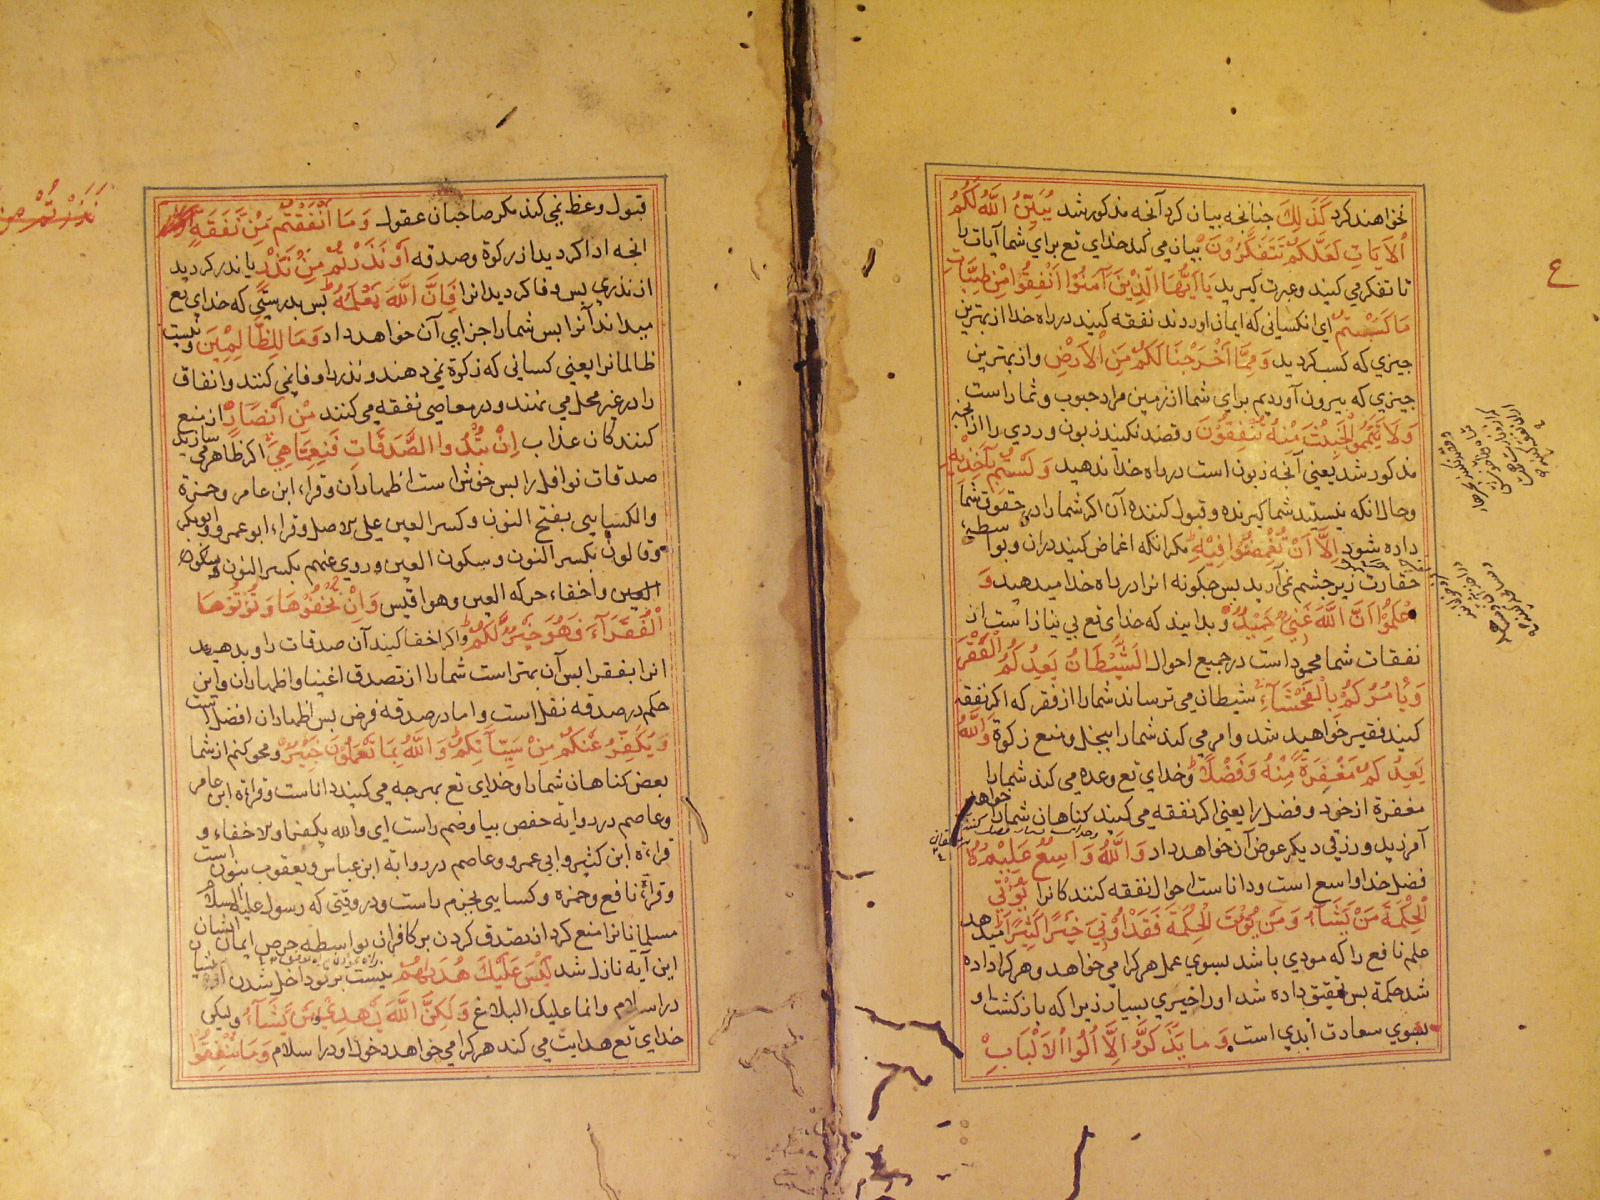 نخواهند کرد کَذَلِكَ چنانچه بیان کرد آنچه مذکور شد یُبَیِّنُ اللَّهُ لَکُمُ
الْآیَاتِ لَعَلَّکُمْ تَتَفَکَّرُونَ بیان می کند خدای تع برای شما آیات را
تا تفکر می کنید و عبرت گیرید یَا أَیُّهَا الَّذِینَ آمَنُوا أَنْفِقُوا مِنْ طَیِّبَاتِ
مَا کَسَبْتُمْ ای آنکسانی که ایمان اوردند نفقه کنید در راه خدا از بهترین
چیزی که کسب کردید وَمِمَّا أَخْرَجْنَا لَکُمْ مِنَ الْأَرْضِ و از بهترین
چیزی که بیرون آوردیم برای شما از زمین مراد حبوب و ثمار است
وَلَا تَیَمَّمُوا الْخَبِیثَ مِنْهُ تُنْفِقُونَ و قصد نکنید زبون و ردی را از آنچه
مذکور شد یعنی آنچه زبون است در راه خدا ندهید وَلَسْتُمْ بِآخِذِیهِ
و حال آنکه نیستید شما گیرنده و قبول کننده آن اگر شما را در حقوق شما
داده شود إِلَّا أَنْ تُغْمِضُوا فِیهِ مگر آنکه اغماض کنید در آن و بواسطه
حقارت زیر چشم نمی آرید پس چگونه انرا در راه خدا میدهید وَ
اعْلَمُوا أَنَّ اللَّهَ غَنِیٌّ حَمِیدٌ و بدانید که خدای تع بی نیاز است از
نفقات شما محمود است در جمیع احوال الشَّیْطَانُ یَعِدُکُمُ الْفَقْرَ
وَیَأْمُرُکُمْ بِالْفَحْشَآءِ شیطان می ترساند شما را از فقر که اگر نفقه
کنید فقیر خواهید شد و امر می کند شما را ببخل و منع زکوة وَاللَّهُ
یَعِدُکُمْ مَغْفِرَةً مِنْهُ وَفَضْلًا و خدای تع وعده می کند شما را
مغفرة از خود و فضل را یعنی اگر نفقه می کنید گناهان شما را خواهد
آمرزید و رزقی دیگر عوض آن خواهد داد وَاللَّهُ وَاسِعٌ عَلِیمٌ
فضل خدا واسع است و دانا است احوال نفقه کنندگانرا یُؤْتِی
الْحِکْمَةَ مَنْ یَشَآءُ وَمَنْ یُؤْتَ الْحِکْمَةَ فَقَدْ أُوتِیَ خَیْرًا کَثِیرًا میدهد
علم نافع را که مودی باشد بسوی عمل هر کرا می خواهد و هر کرا داده
شد حکمة پس بتحقیق داده شد او را خیری بسیار زیرا که بازگشت او
بسوی سعادت ابدی است وَمَا یَذَّکَّرُ إِلَّا أُولُوا الْأَلْبَابِ
٤
قبول وعظ نمی کند مگر صاحبان عقول وَمَا أَنْفَقْتُمْ مِنْ نَفَقَةٍ
انچه ادا کردید از زکوة و صدقه أَوْ نَذَرْتُمْ مِنْ نَذْرٍ یا نذر کردید
از نذری پس وفا کردید انرا فَإِنَّ اللَّهَ یَعْلَمُهُ پس بدرستی که خدای تع
میداند آنرا پس شما را جزای آن خواهد داد وَمَا لِلظَّالِمِینَ و نیست
ظالمانرا یعنی کسانی که زکوة نمی دهند و نذر را وفا نمی کنند و انفاق
را در غیر محل می نهند و در معاصی نفقه می کنند مِنْ أَنْصَارٍ از منع
کنندگان عذاب إِنْ تُبْدُوا الصَّدَقَاتِ فَنِعِمَّا هِیَ اگر ظاهر می سازید
صدقات نوافل را پس خوش است اظهار آن و قراء ابن عامر و حمزة
والکسایی بفتح النون و کسر العین علی الاصل و قراء ابو عمرو و ابو بکر
و قالون بکسر النون و سکون العین و روی عنهم بکسر النون و سکون
العین و اخفاء حرکه العین و هو اقیس وَإِنْ تُخْفُوهَا وَتُؤْتُوهَا
الْفُقَرَآءَ فَهُوَ خَیْرٌ لَکُمْ و اگر اخفا کنید آن صدقات را و بدهید
انرا بفقرا پس آن بهتر است شما را از تصدق اغنیا و اظهار آن و این
حکم در صدقه نفل است و اما در صدقه فرض پس اظهار آن افضل است
وَیُکَفِّرُ عَنْکُمْ مِنْ سَیِّآتِکُمْ وَاللَّهُ بِمَا تَعْمَلُونَ خَبِیرٌ و محو کنم از شما
بعض گناهان شما را و خدای تع بهرچه می کنید دانا است و قراءة ابن عامر
و عاصم در روایة حفص بیا و ضم راست ای والله یکفر او الاخفاء و
قراءة ابن کثیر و ابی عمرو و عاصم در روایة ابن عباس و یعقوب بنون است
و قراءة نافع و حمزه و کسایی بجزم راست و در وقتی که رسول علیه السلام
مسلمانانرا منع کرد از تصدق کردن بر کافران بواسطه حرص ایمان ایشان
این آیه نازل شد لَیْسَ عَلَیْكَ هُدَاهُمْ نیست بر تو داخل شدن
در اسلام و انما علیک البلاغ وَلَکِنَّ اللَّهَ یَهْدِی مَنْ یَشَآءُ ولیکن
خدای تع هدایت می کند هر کرا می خواهد دخول او در اسلام وَمَا تُنْفِقُوا